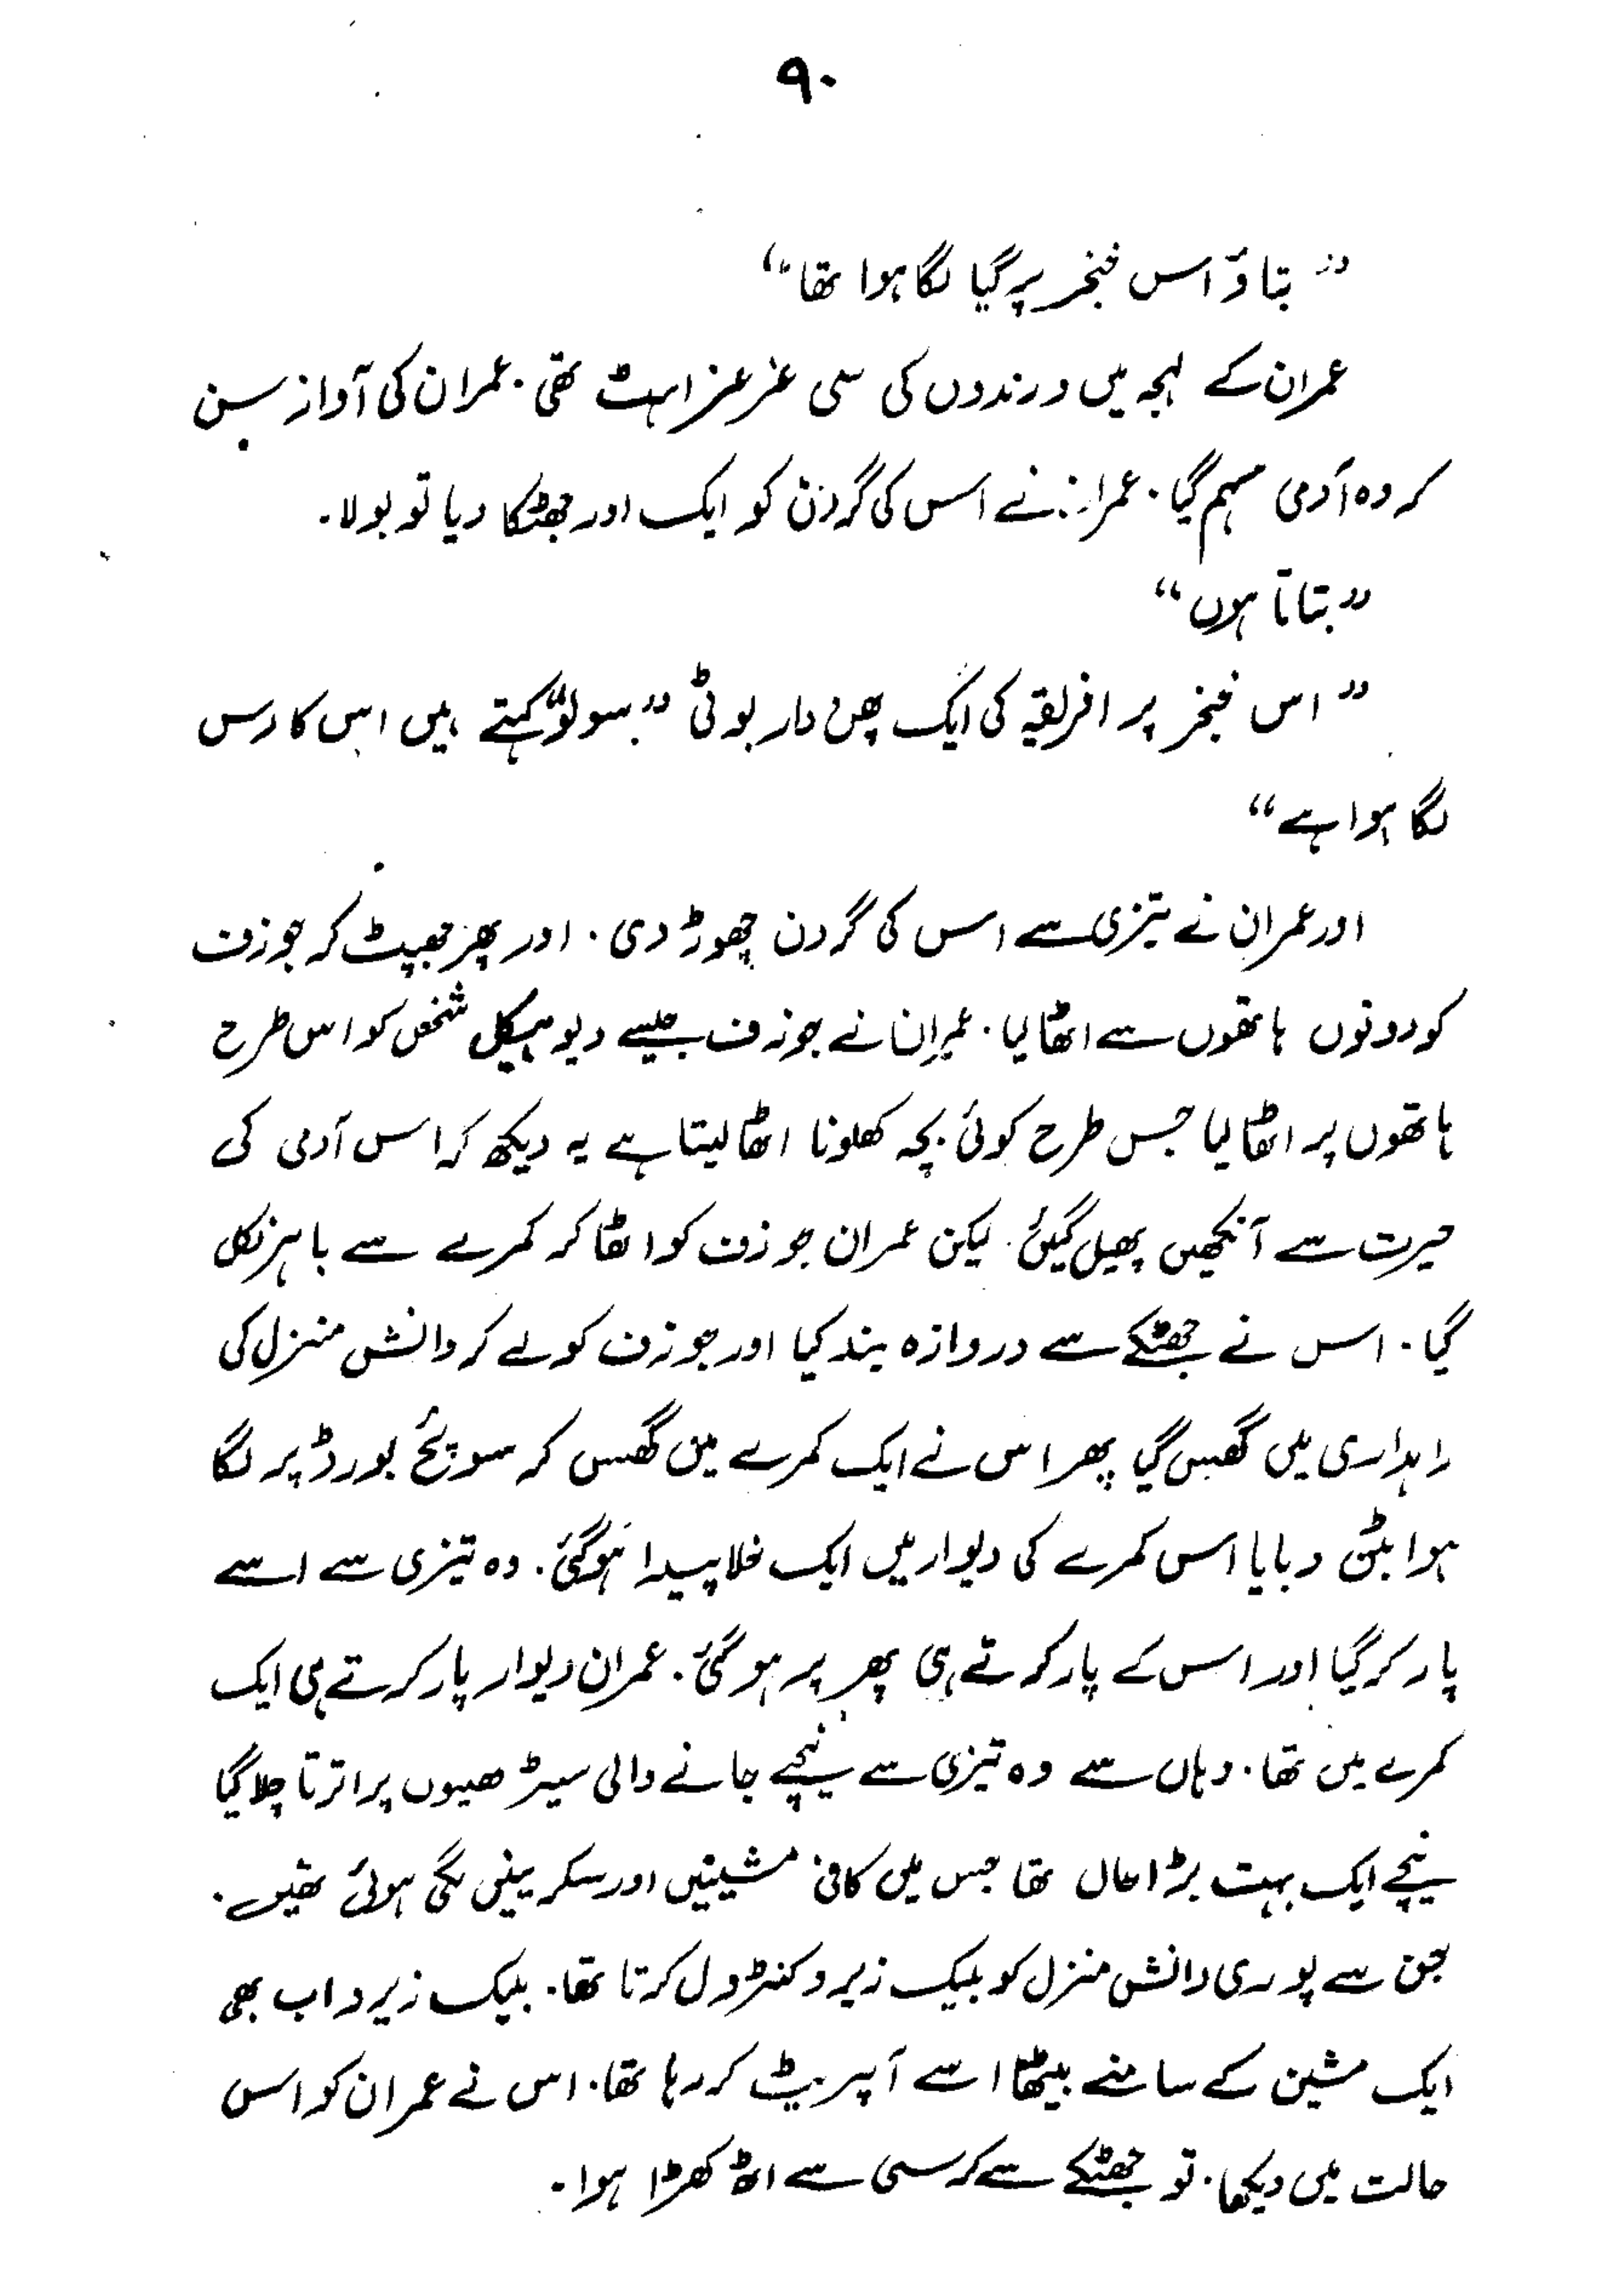 ۹۰
” بتاؤ اس خنجر پر کیا لگا ہوا تھا“
عمران کے لہجہ میں درندوں کی سی غرغراہٹ تھی۔ عمران کی آواز سن
کر وہ آدمی سہم گیا۔ عمران نے اس کی گردن کو ایک اور جھٹکا دیا تو بولا۔
” بتاتا ہوں“
” اس خنجر پر افریقہ کی ایک پھن دار بوٹی ” سولو“ کہتے ہیں اس کا رس
لگا ہوا ہے“
اور عمران نے تیزی سے اس کی گردن چھوڑ دی۔ اور پھر جھپٹ کر جوزف
کو دونوں ہاتھوں سے اٹھا لیا۔ عمران نے جوزف جیسے دیو ہیکل شخص کو اس طرح
ہاتھوں پر اٹھا لیا جس طرح کوئی بچہ کھلونا اٹھا لیتا ہے یہ دیکھ کر اس آدمی کی
حیرت سے آنکھیں پھیل گیئں۔ لیکن عمران جوزف کو اٹھا کر کمرے سے باہر نکل
گیا۔ اس نے جھٹکے سے دروازہ بند کیا اور جوزف کو لے کر دانش منزل کی
راہداری میں گھس گیا پھر اس نے ایک کمرے میں گھس کر سوئچ بورڈ پر لگا
ہوا بٹن دبایا اس کمرے کی دیوار میں ایک خلا پیدا ہو گئی۔ وہ تیزی سے اسے
پار کر گیا اور اس کے پار کرتے ہی پھر پر ہو گئی۔ عمران دیوار پار کرتے ہی ایک
کمرے میں تھا۔ وہاں سے وہ تیزی سے نیچے جانے والی سیڑھیوں پر اترتا چلا گیا
نیچے ایک بہت بڑا ہال تھا جس میں کافی مشینیں اور سکرینیں لگی ہوئی تھیں۔
جن سے پوری دانش منزل کو بلیک زیرو کنٹرول کرتا تھا۔ بلیک زیرو اب بھی
ایک مشین کے سامنے بیٹھا اسے آپریٹ کر رہا تھا۔ اس نے عمران کو اس
حالت میں دیکھا۔ تو جھٹکے سے کرسی سے اٹھ کھڑا ہوا۔